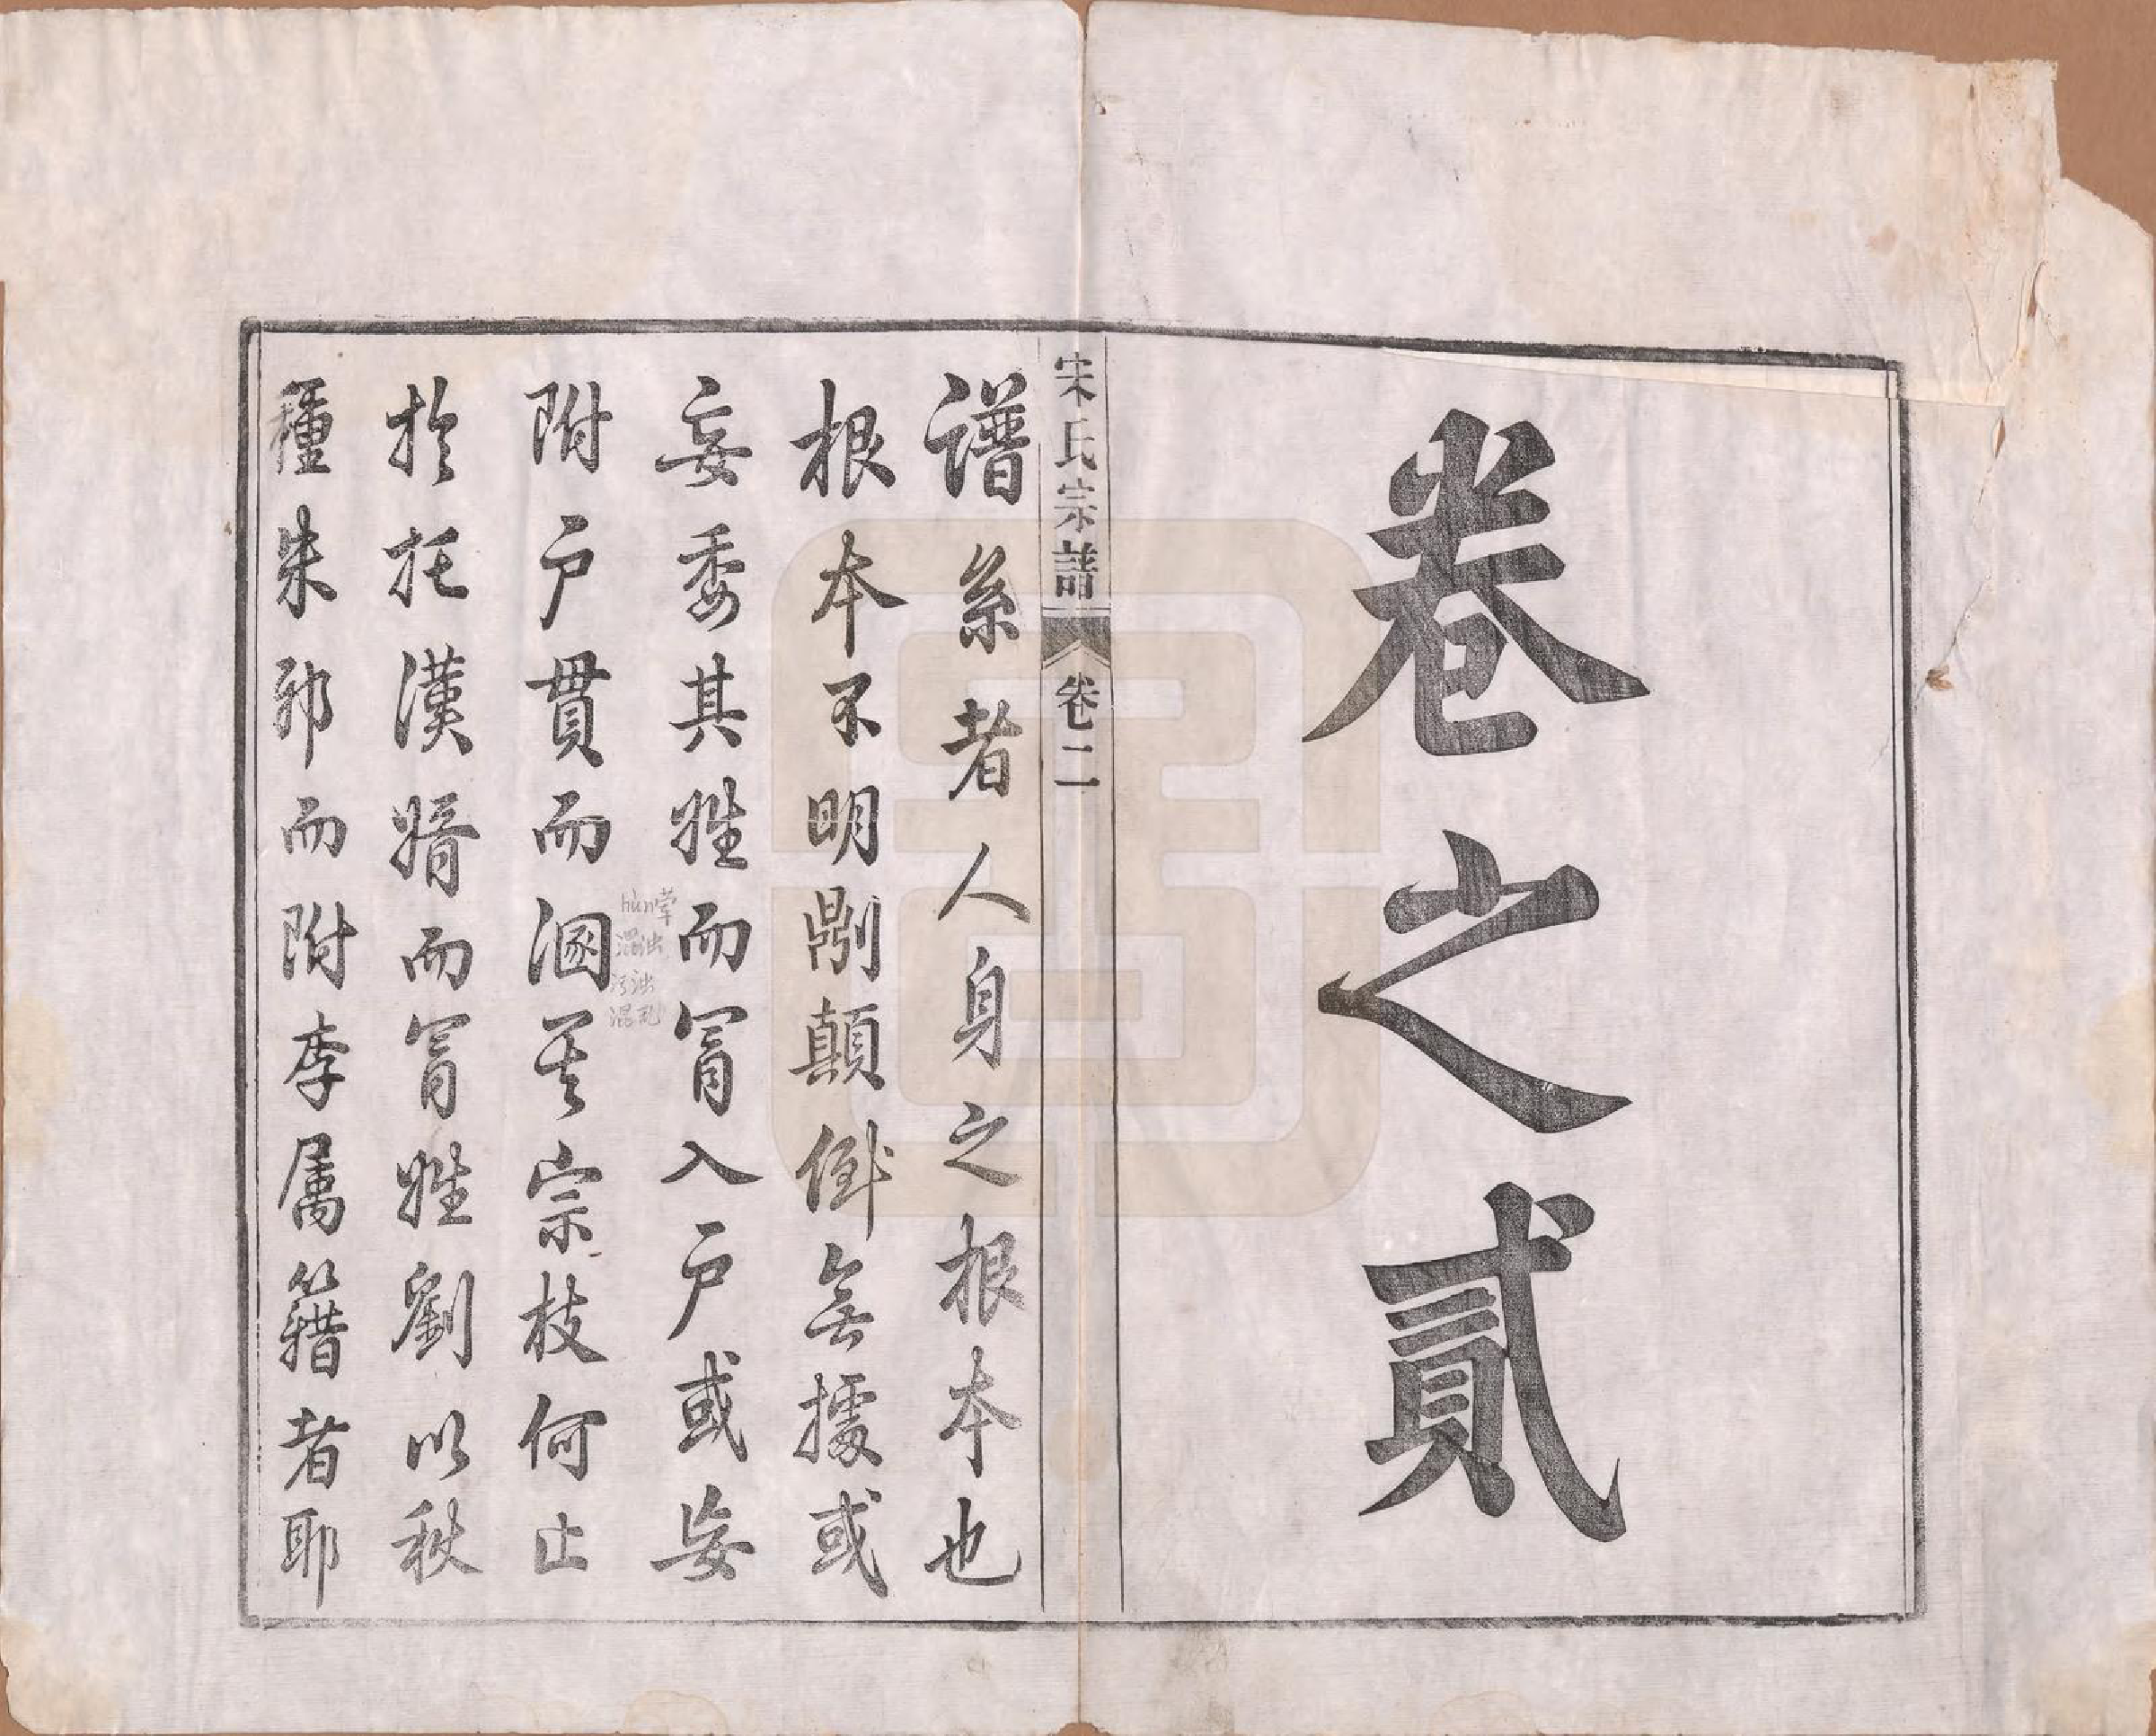 卷之貳
宋氏宗譜
卷二
譜系者人身之根本也
根本不明則顛倒無據或
妄委其姓而冒入户或妄
附户貫而溷其宗枝何止
於托漢婿而冒姓劉以秋
種朱邪而附李属籍者耶
hùn
混浊
污浊
混乱